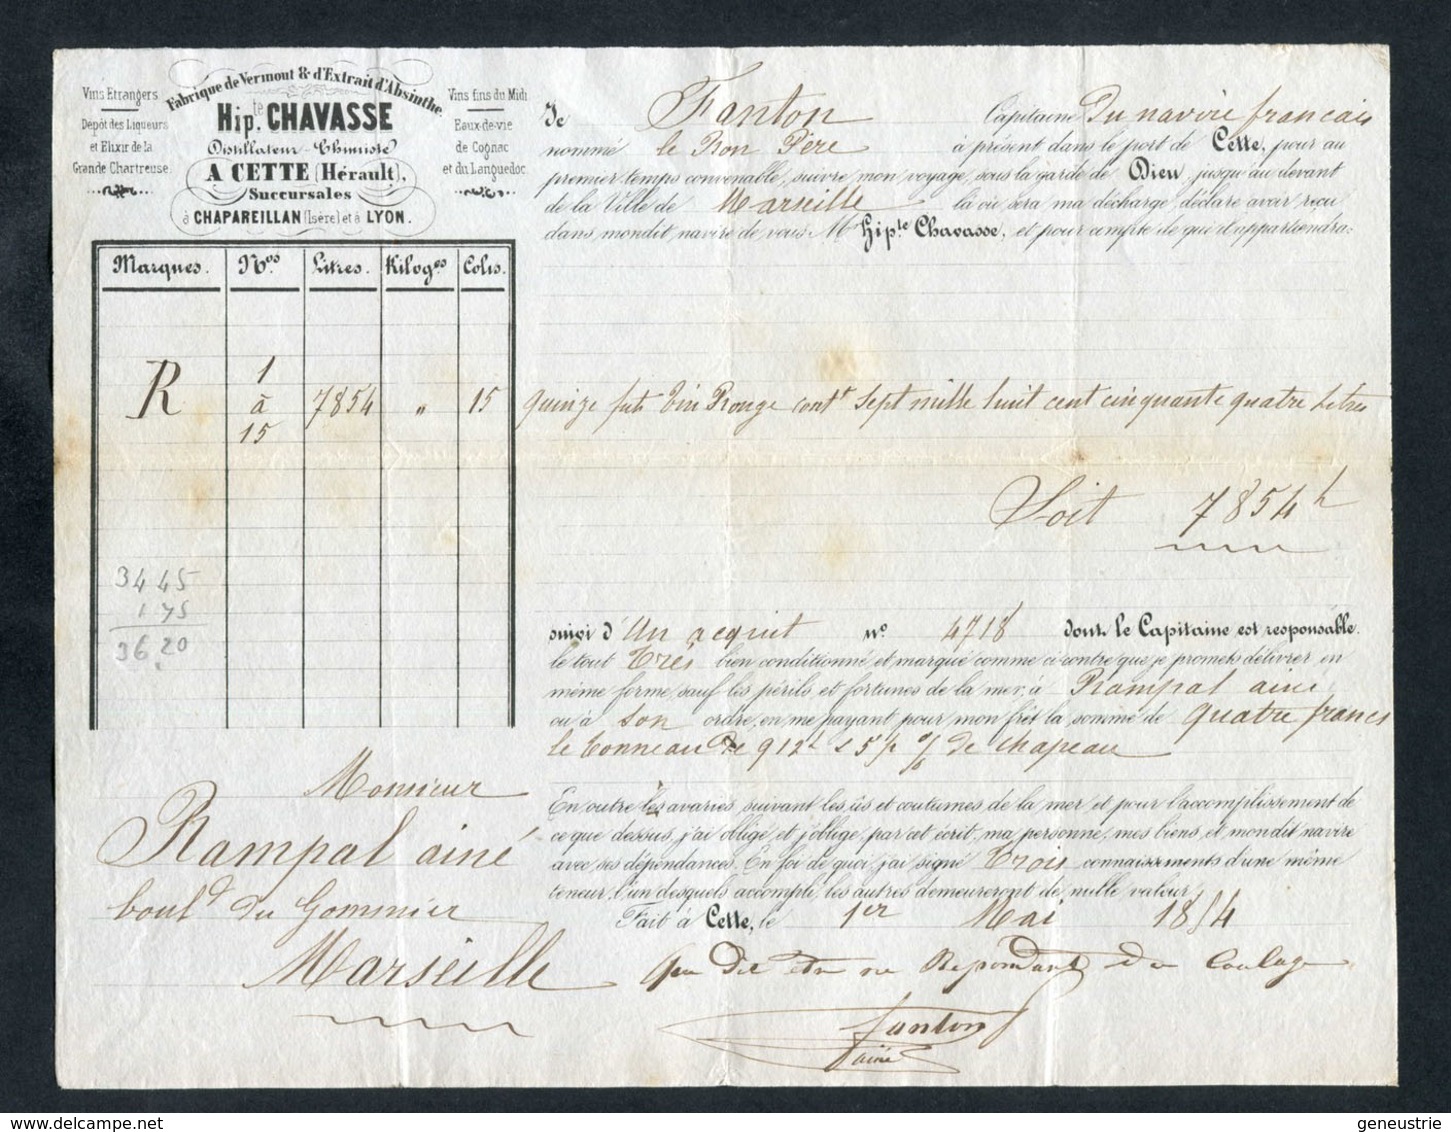 Vins Etrangers
Dépôt des Liqueurs
et Elixir de la
Grande Chartreuse.
Fabrique de Vermout & d'Extrait d'Absinthe
Hip.te CHAVASSE
Distillateur-Chimiste
A CETTE (Hérault),
Succursales
à CHAPAREILLAN (Isère) et à LYON.
Vins fins du Midi
Eaux-de-vie
de Cognac
et du Languedoc.
Je Fanton Capitaine du navire francais
nommé le Bon Père à présent dans le port de Cette, pour au
premier temps convenable, suivre mon voyage, sous la garde de Dieu, jusqu'au devant
de la Ville de Marseille là où sera ma décharge, déclare avoir reçu
dans mondit navire de vous M Hip.te Chavasse, et pour compte de qui il appartiendra:
Marques. Nos Litres. Kilog.es Colis.
R 1 à 15 7854 " 15 quinze futs Vin Rouge cont.t Sept mille huit cent cinquante quatre Litres
Soit 7854 l
3445
175
36.20
suivi d'Un acquit n.o 4718 dont le Capitaine est responsable.
le tout très bien conditionné et marqué comme ci-contre que je promets délivrer en
même forme, sauf les périls et fortunes de la mer, à Rampal ainé
ou à son ordre, en me payant pour mon frêt la somme de quatre francs
le tonneau de 912 l & 5 p % de chapeau
En outre les avaries suivant les us et coutumes de la mer et pour l'accomplissement de
ce que dessus, j'ai obligé et j'oblige, par cet écrit, ma personne, mes biens, et mondit navire
avec ses dépendances. En foi de quoi, j'ai signé trois connaissements d'une même
teneur, l'un desquels accompli, les autres demeureront de nulle valeur,
Fait à Cette, le 1er Mai 1854
Monsieur
Rampal ainé
boul.d du Gommier
Marseille
que dit être ne Répondant du Coulage
Fanton
ainé
geneustrie